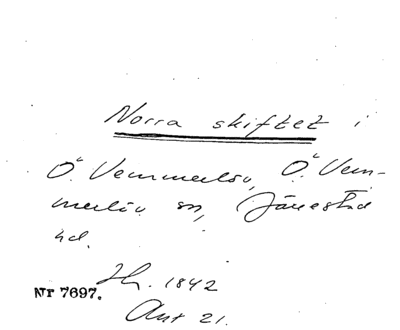 Norra skiftet i
Ö. Vemmerlöv, Ö. Vem-
merlöv sn, Järrestad
hd.
Hr. 1842
Nr 7697.
Akt 21.